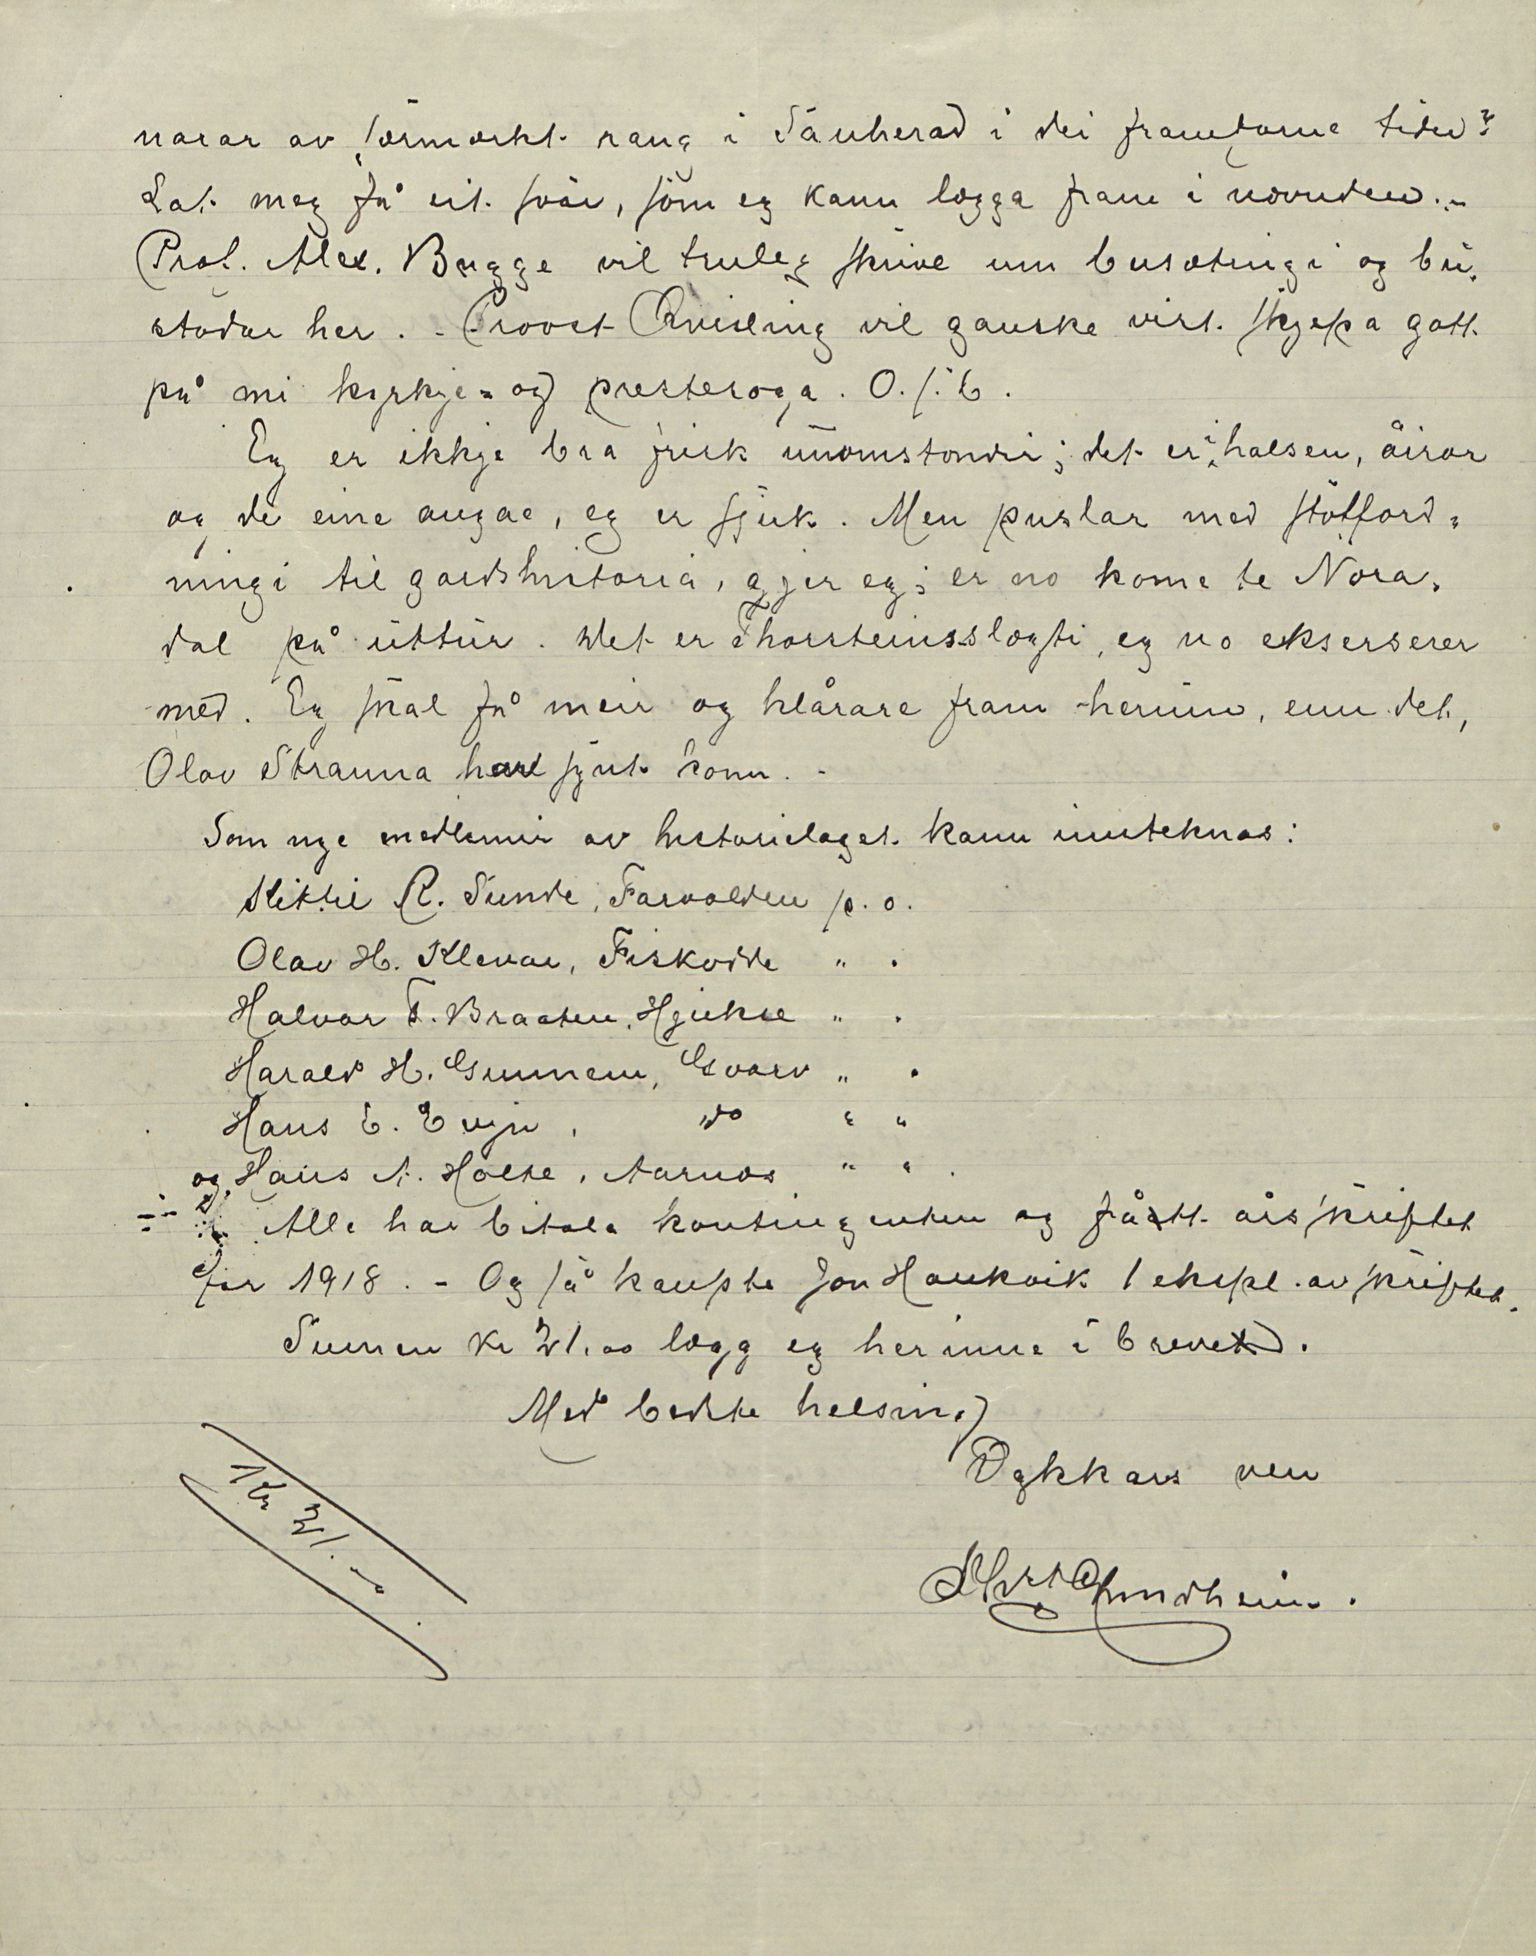 narar av særmærkt rang i Sauherad i dei framfarne tider?
Lat meg få eit svar, som eg kann lægga fram i nævnden. -
Prof. Alex. Bugge vil truleg skrive um busætingi og bu-
stadar her. - Provst Qvisling vil ganske visst skjepa gott
på mi kyrkje- og presteroga. O.s.b.
Eg er ikkje bra frisk umomstondri; det er i halsen, åirar
og de eine augae, eg er sjuk. Men puslar med
ningi til gardshistoria, gjer eg; er no kome te Nora-
dal på uttur. Det er Thorsteinsslægti, eg no ekserserer
med. Eg skal få meir og klårare fram herum, enn det,
Olav Stranna har kann. -
Som nye medlemir av historielaget kann innteknas:
Kittil R. Sunde, Farvolden p.o.
Olav H. Klevar, Fiskodde " .
Halvar T. Braaten, Hjukse " .
Harald H. Gunnem, Gvarv " .
Hans E. Evju, do " "
og Hans A. Holte, Aarnæs " " .
Alle har betala kontingenten og fått årsskriftet
for 1918. - Og så kaupte Jon Haukvik 1 ekspl. av skriftet.
Summen kr 21.00 lægg eg herinne i brevet.
Med bedste helsing
Dykkars ven
Sundheim.
Kr 21.00